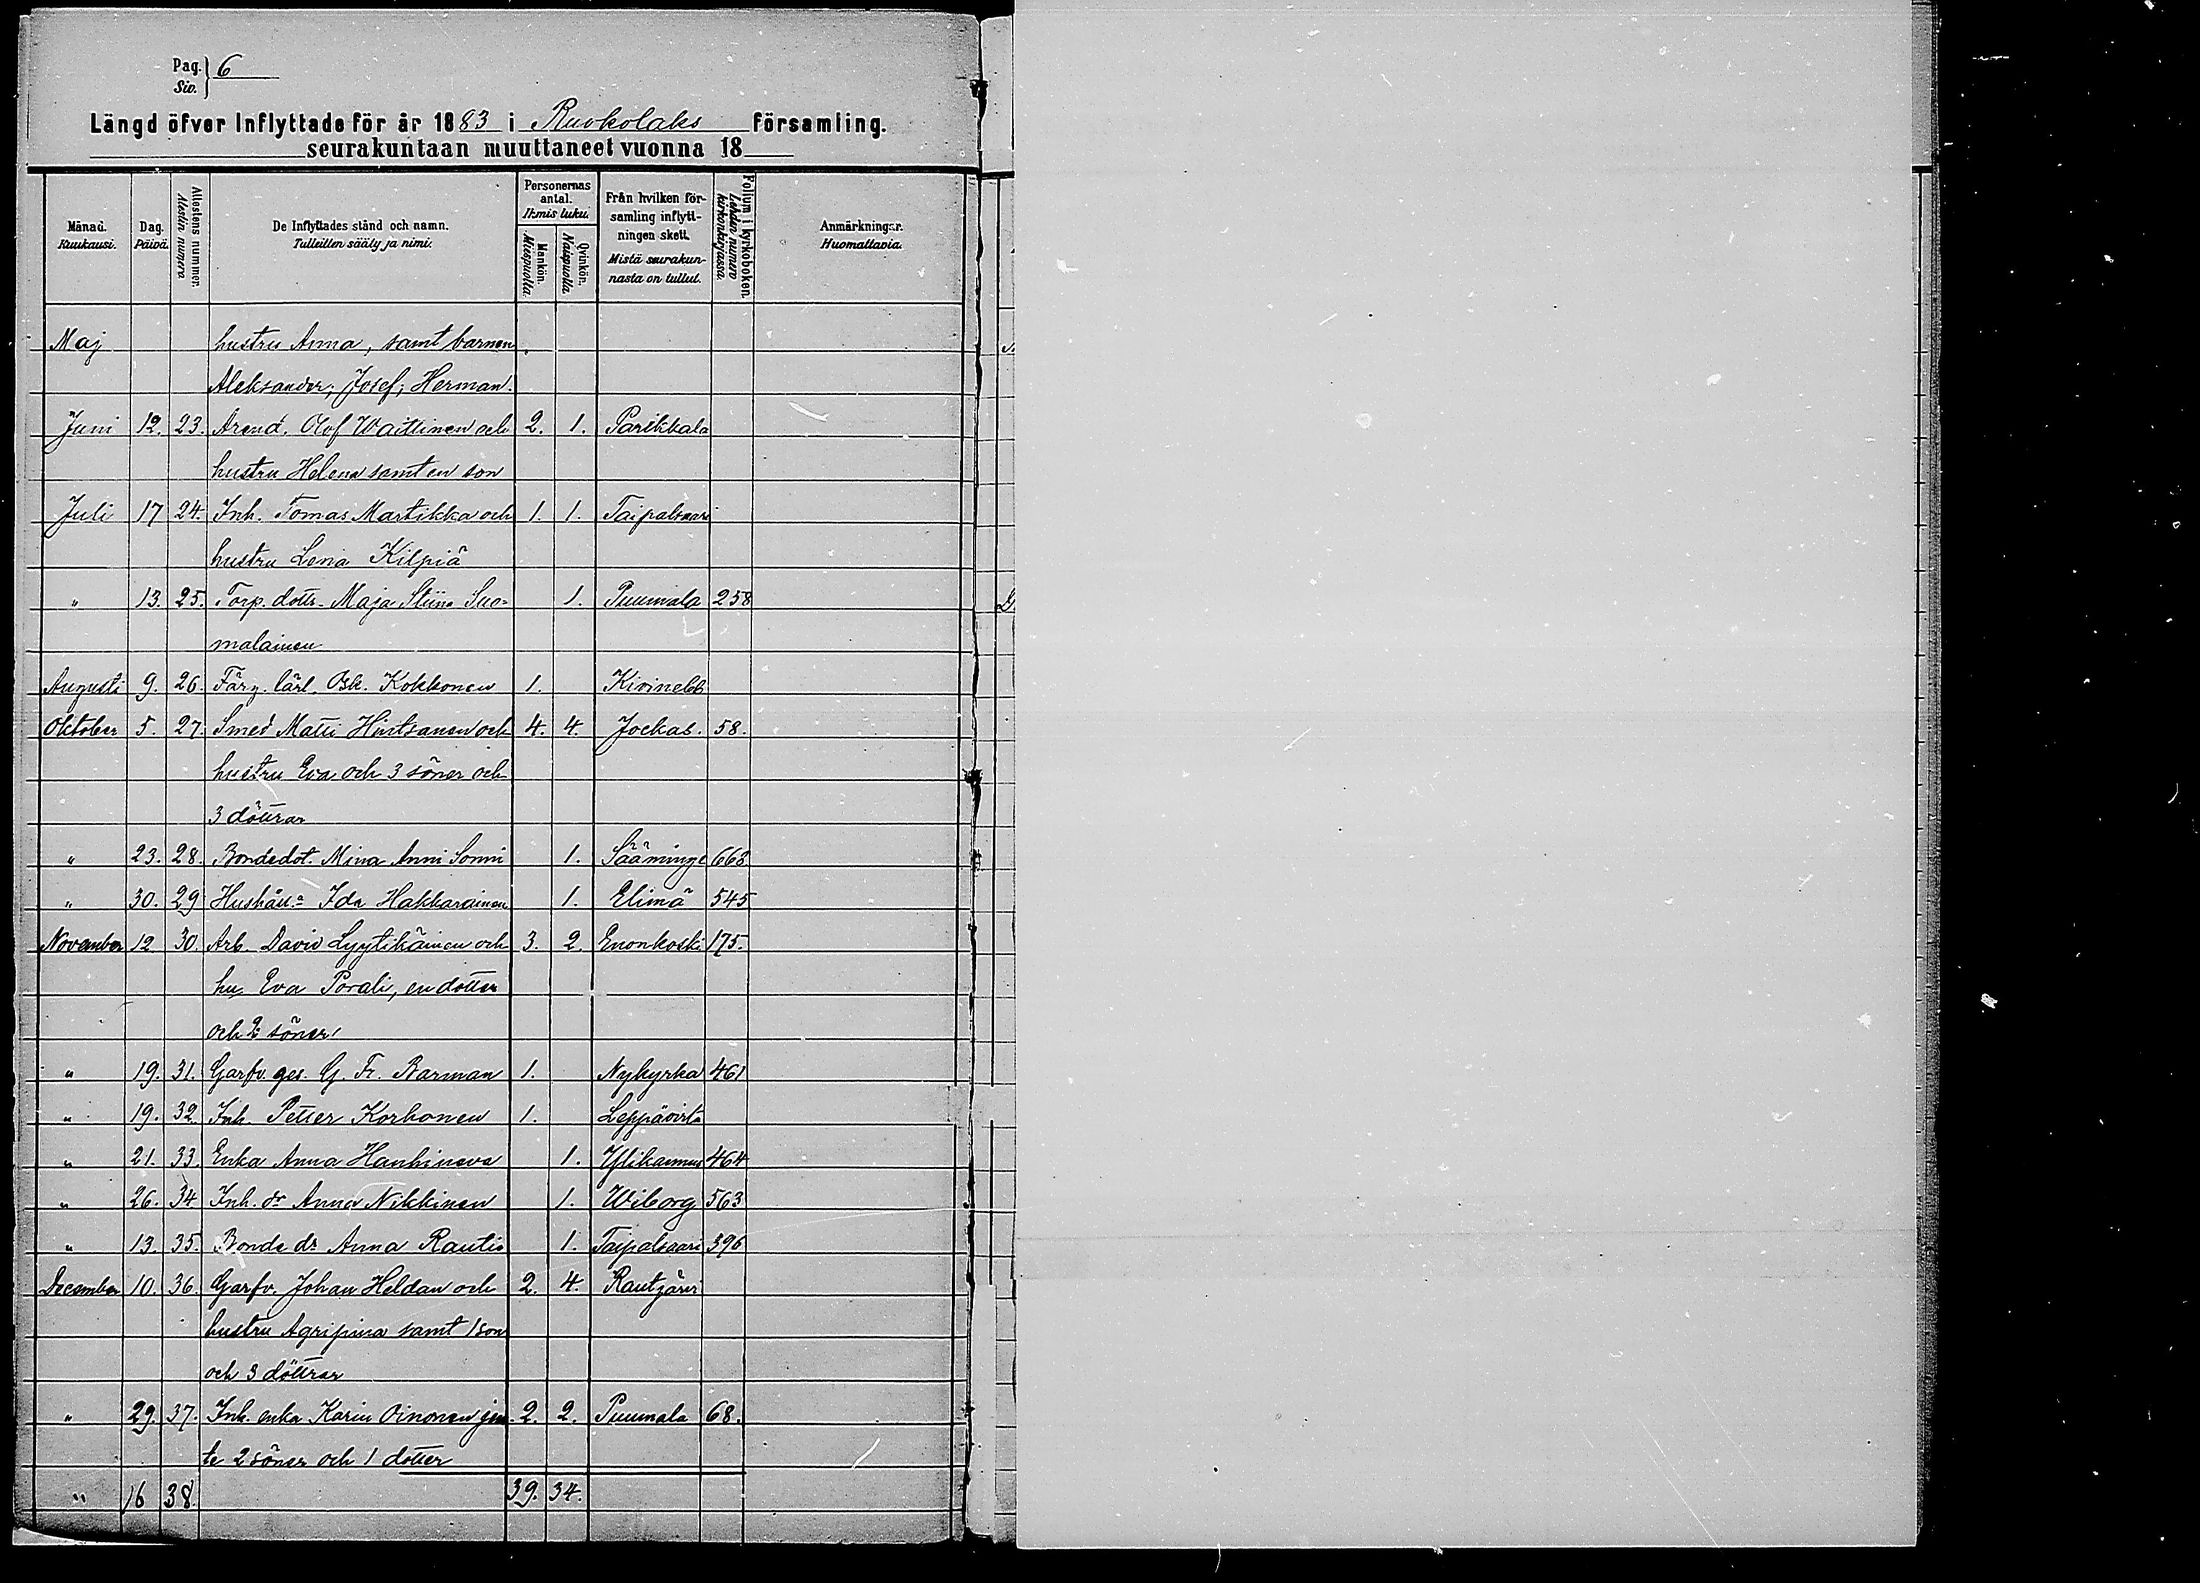 Pag. 6
Siv.
Längd öfver Inflyttade för år 1883 i Ruokolaks församling.
seurakuntaan muuttaneet vuonna 18
Månad. Kuukausi. Dag. Päivä. Attestens nummer. Allestin numero. De Inflyttades stånd och namn. Tulleitten sääty ja nimi. Personernas antal. Ihmis luku. Mankön. Miespuolia. Qvinkön. Naispuolia. Från hvilken församling inflyttningen skett. Mistä seurakunnasta on tullut. Folium i kyrkoboken. Lehden numero kirkonkirjassa. Anmärkning:r. Huomattavia.
Maj hustru Anna, samt barnen
Aleksander; Josef; Herman.
Juni 12. 23. Arend. Olof Waittinen och 2. 1. Parikkala
hustru Helena samt en son
Juli 17 24. Inh. Tomas Martikka och 1. 1. Taipalsaari
hustru Lena Kilpiä
" 13. 25. Torp. dottr. Maja Stiina Suo= 1. Puumala 258
malainen
Augusti 9. 26. Färg. lärl. Osk. Kokkonen 1. Kivinebb
Oktober 5. 27. Smed Matti Hintsanen och 4. 4. Jockas. 58.
hustru Eva och 3 söner och
3 döttrar
" 23. 28. Bondedot. Mina Anni Sonni 1. Sääminge 663
" 30. 29 Hushåll:a Ida Hakkarainen 1. Elimä 545
November 12 30. Arb. David Lyytikäinen och 3. 2. Enonkoski 175.
hu. Eva Porali, en dotter
och 2 söner
" 19. 31. Garfv. ges. G. Fr. Barman 1. Nykyrka 461
" 19. 32 Inh. Petter Korhonen 1. Leppävirta
" 21. 33. Enka Anna Hanhineva 1. Ylikannus 464
" 26. 34 Inh. dr Anna Nikkinen 1. Wiborg 563
" 13. 35. Bonde dr Anna Rautio 1. Taipalsaari 396
December 10. 36. Garfv. Johan Heldan och 2. 4. Rautjärvi
hustru Agripina samt 1 son
och 3 döttrar
" 29. 37. Inh. enka Karin Oinonen jem 2. 2. Puumala 68.
te 2 söner och 1 dotter
" 16 38. 39. 34.